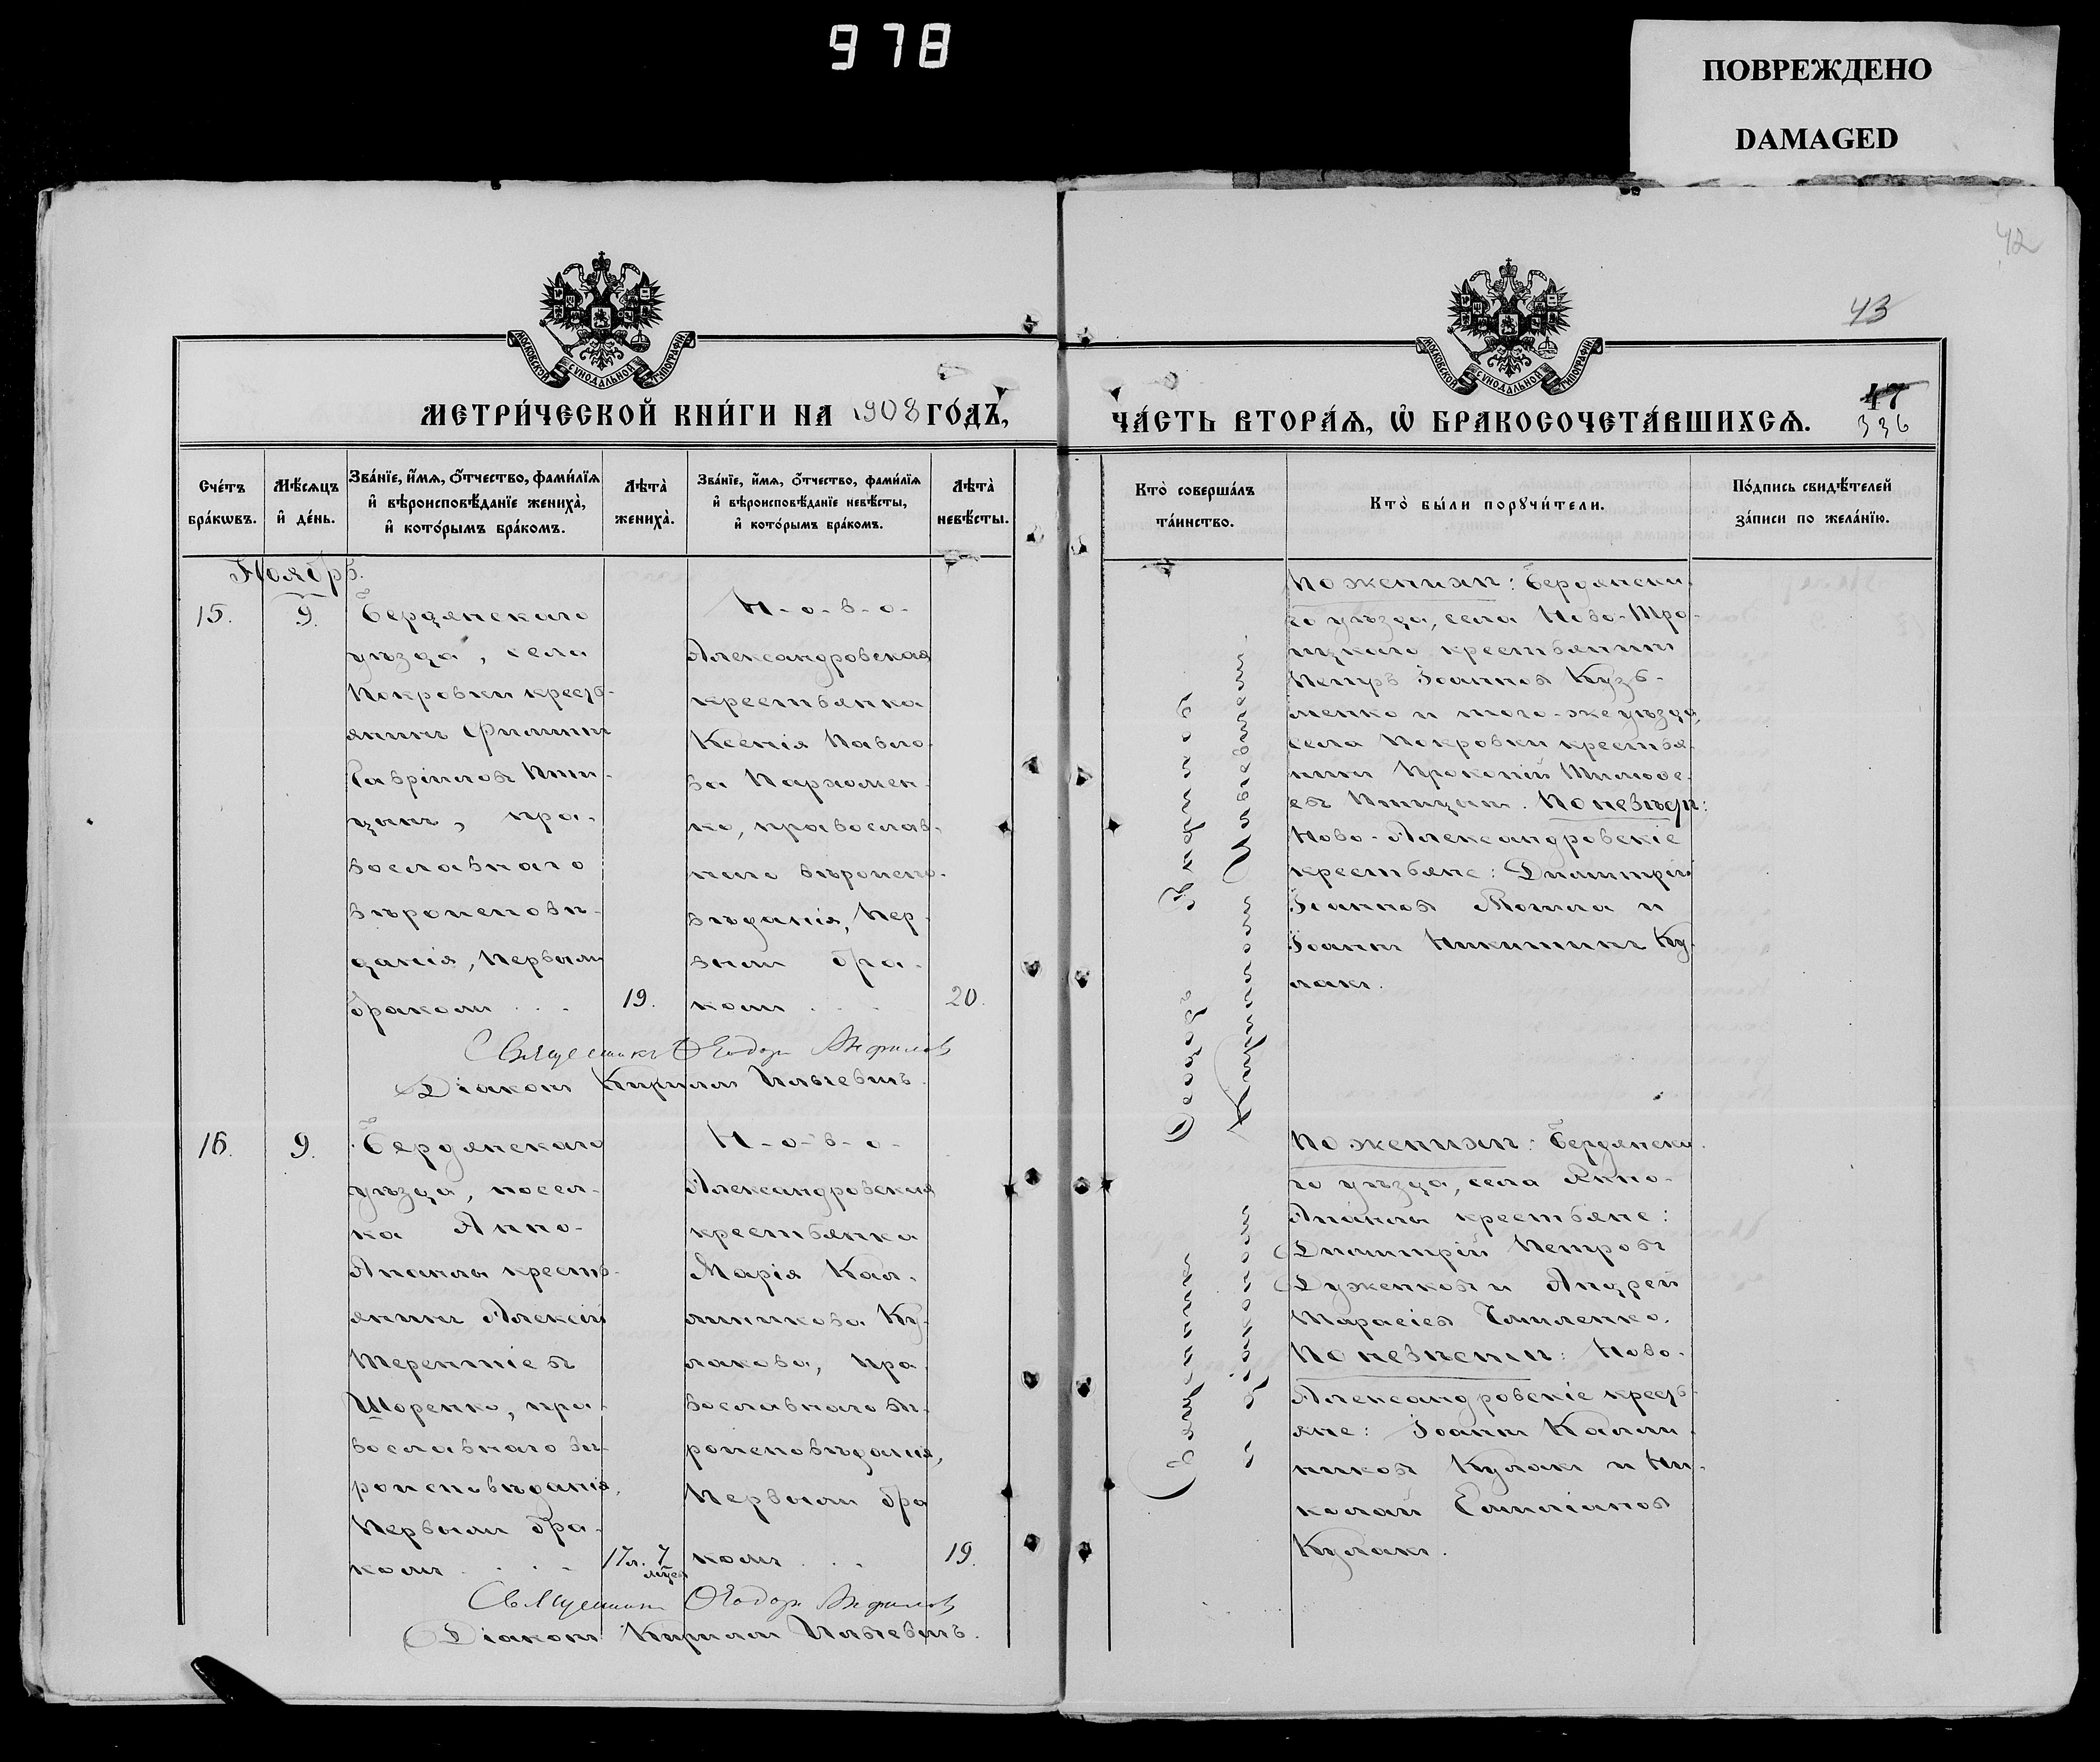 978
ПОВРЕЖДЕНО
DAMAGED
42
43
МОСКОВСКОЙ СѴНОДАЛЬНОЙ ТИПОГРАФІИ
МЕТРИ́ЧЕСКОЙ КНИ́ГИ НА 1908 ГО́ДЪ,
Сче́тъ бра́кѡвъ.
Мѣ́сяцъ и҆ де́нь.
Зва́нїе, и҆́мя, ѻ҆́тчество, фами́лїя
и҆ вѣроисповѣ́данїе жениха̀,
и҆ кото́рымъ бра́комъ.
Лѣта̀ жениха̀.
Зва́нїе, и҆́мя, ѻ҆́тчество, фами́лїя
и҆ вѣроисповѣ́данїе невѣ́сты,
и҆ кото́рымъ бра́комъ.
Лѣта̀ невѣ́сты.
Ноябрь.
15.
9.
Бердянскаго
уѣзда, села
Покровки кресть-
янинъ Филиппъ
Гавріиловъ Пти-
цынъ, пра-
вославнаго
вѣроисповѣ-
данія, первымъ
бракомъ . . .
19.
Н-о-в-о-
Александровская
крестьянка
Ксенія Павло-
ва Пархомен-
ко, православ-
наго вѣроиспо-
вѣданія, пер-
вымъ бра-
комъ . . .
20.
Священникъ Ѳеодоръ
Діаконъ Кириллъ Ильевичъ.
16.
9.
Бердянскаго
уѣзда, посел-
ка Анно-
Апанлы кресть-
янинъ Алексій
Терентіевъ
Шоренко, пра-
вославнаго вѣ-
роисповѣданія,
первымъ бра-
комъ . . .
17 л. 7 мѣсяц.
Н-о-в-о-
Александровская
крестьянка
Марія Кал-
линикова Ку-
лакова, пра-
вославнаго вѣ-
роисповѣданія,
первымъ бра
комъ . . .
19.
Священникъ Ѳеодоръ
Діаконъ Кириллъ Ильевичъ.
МОСКОВСКОЙ СѴНОДАЛЬНОЙ ТИПОГРАФІИ
ЧА́СТЬ ВТОРА́Ѧ, Ѽ БРАКОСОЧЕТА́ВШИХСѦ.
47
336
Кто̀ соверша́лъ та́инство.
Кто̀ бы́ли порꙋчи́тели.
По́дпись свидѣ́телей
за́писи по жела́нїю.
Священникъ Ѳеодоръ
и діакономъ Кирилломъ Ильевичемъ.
По женихѣ: Бердянска-
го уѣзда, села Ново-Тро-
ицкаго крестьянинъ
Петръ Іоанновъ Кузь-
менко и того-же уѣзда,
села Покровки крестья-
нинъ Прокопій Тимоѳе-
евъ Птицынъ. По невѣстѣ:
Ново-Александровскіе
крестьяне: Димитрій
Іоанновъ Могила и
Іоаннъ Никитинъ Ку-
лакъ.
По женихѣ: Бердянска-
го уѣзда, села Анно-
Апанлы крестьяне:
Димитрій Петровъ
Луженковъ и Андрей
Тарасіевъ
По невѣстѣ: Ново-
Александровскіе кресть-
яне: Іоаннъ Калли-
никовъ Кулакъ и Ни-
колай Емиліановъ
Кулакъ.